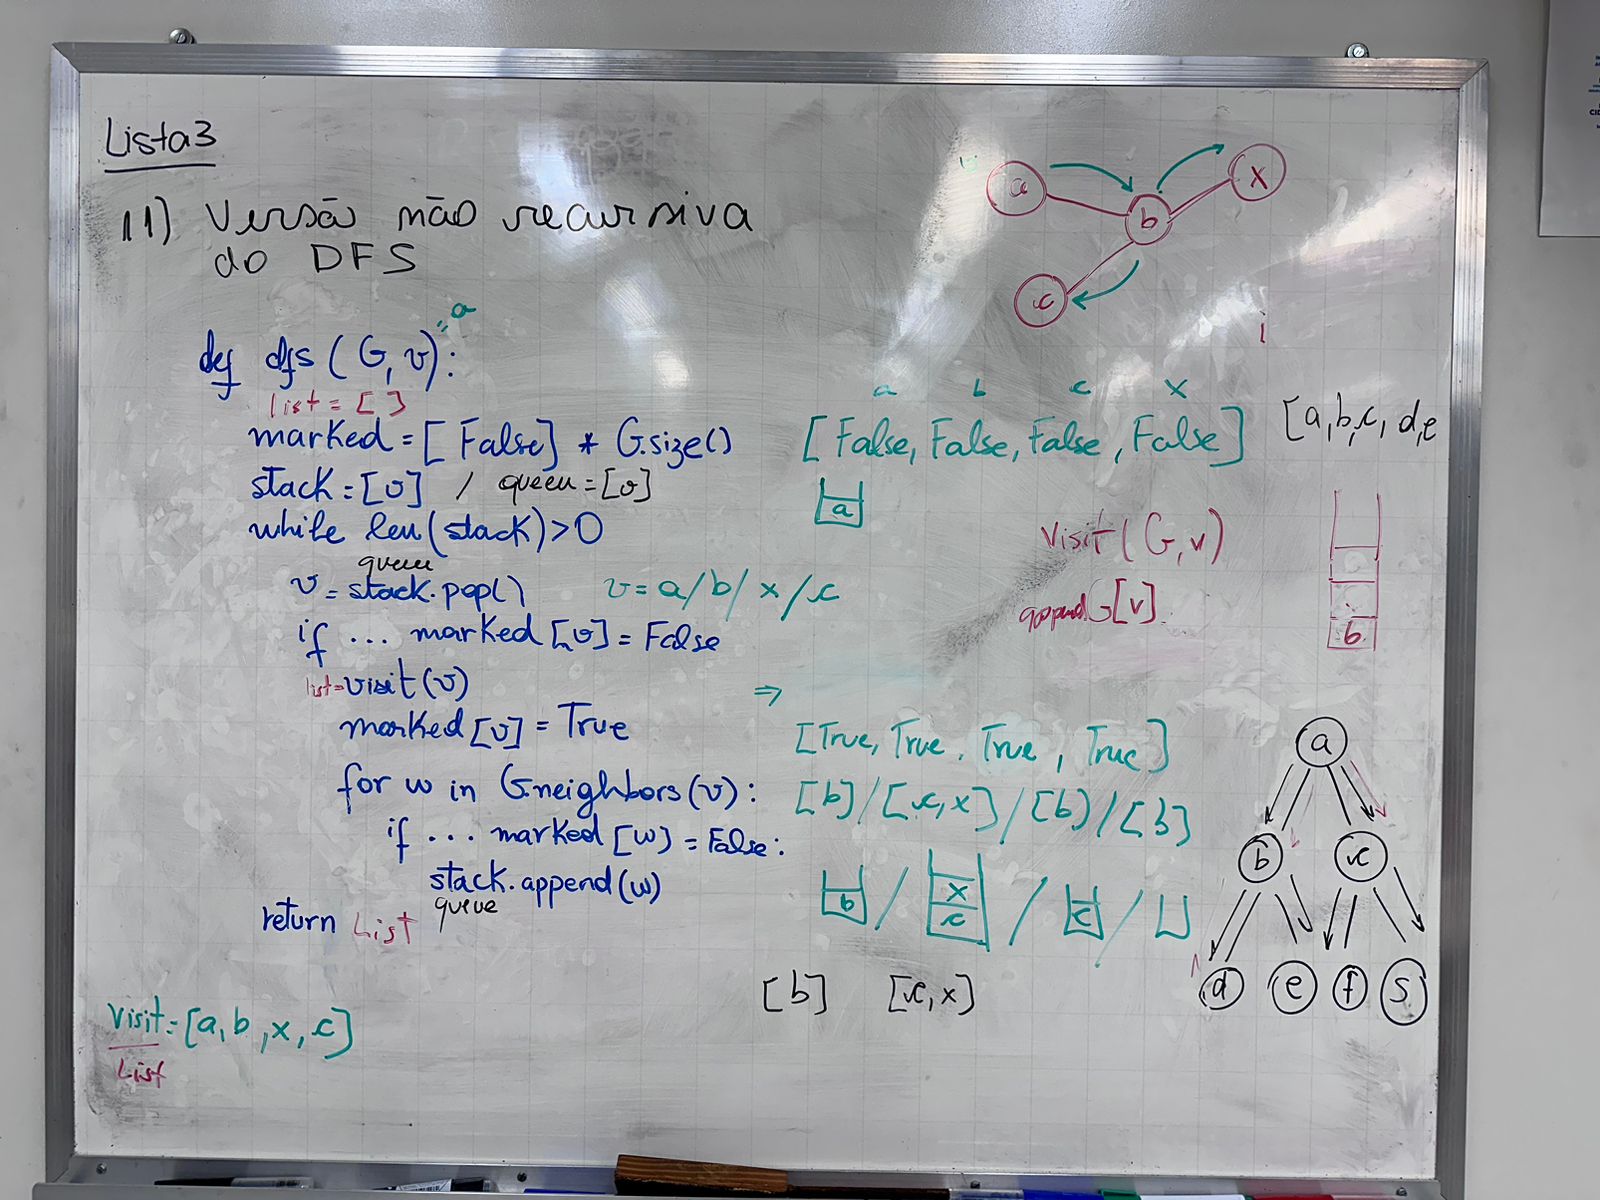 Lista3
11) Versão não recursiva
do DFS
= a
def dfs ( G, v):
list = [ ]
marked = [ False] * G.size()
stack = [v] / queeu = [v]
while len(stack) > 0
queue
v = stack.pop()
v = a/b/ x / c
if ... marked [v] = False
list = visit(v)
marked [v] = True
for w in G.neighbors(v) :
if ... marked [w] = False:
stack.append(w)
queue
return List
visit = [a, b, x, c]
List
a
b
x
c
a b c x
[ False, False, False, False ]
[a, b, c, d, e
a
visit ( G, v)
append G[v]
b
⇒
[True, True, True, True ]
[b] / [c, x] / [b] / [b]
b / x c / c /
[b] [c, x]
a
b c
d e f s